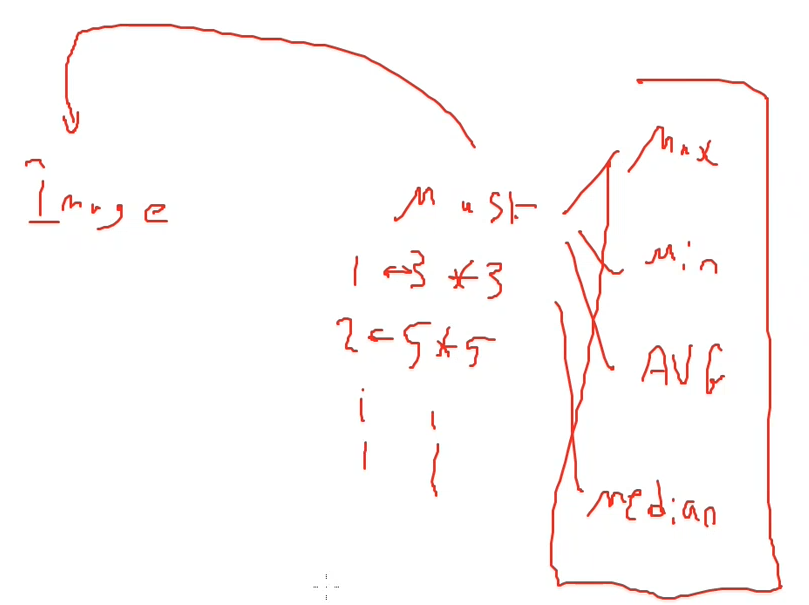 Image
Mask
1 ↔ 3 * 3
2 ← 5 * 5
Max
Min
AVG
Median